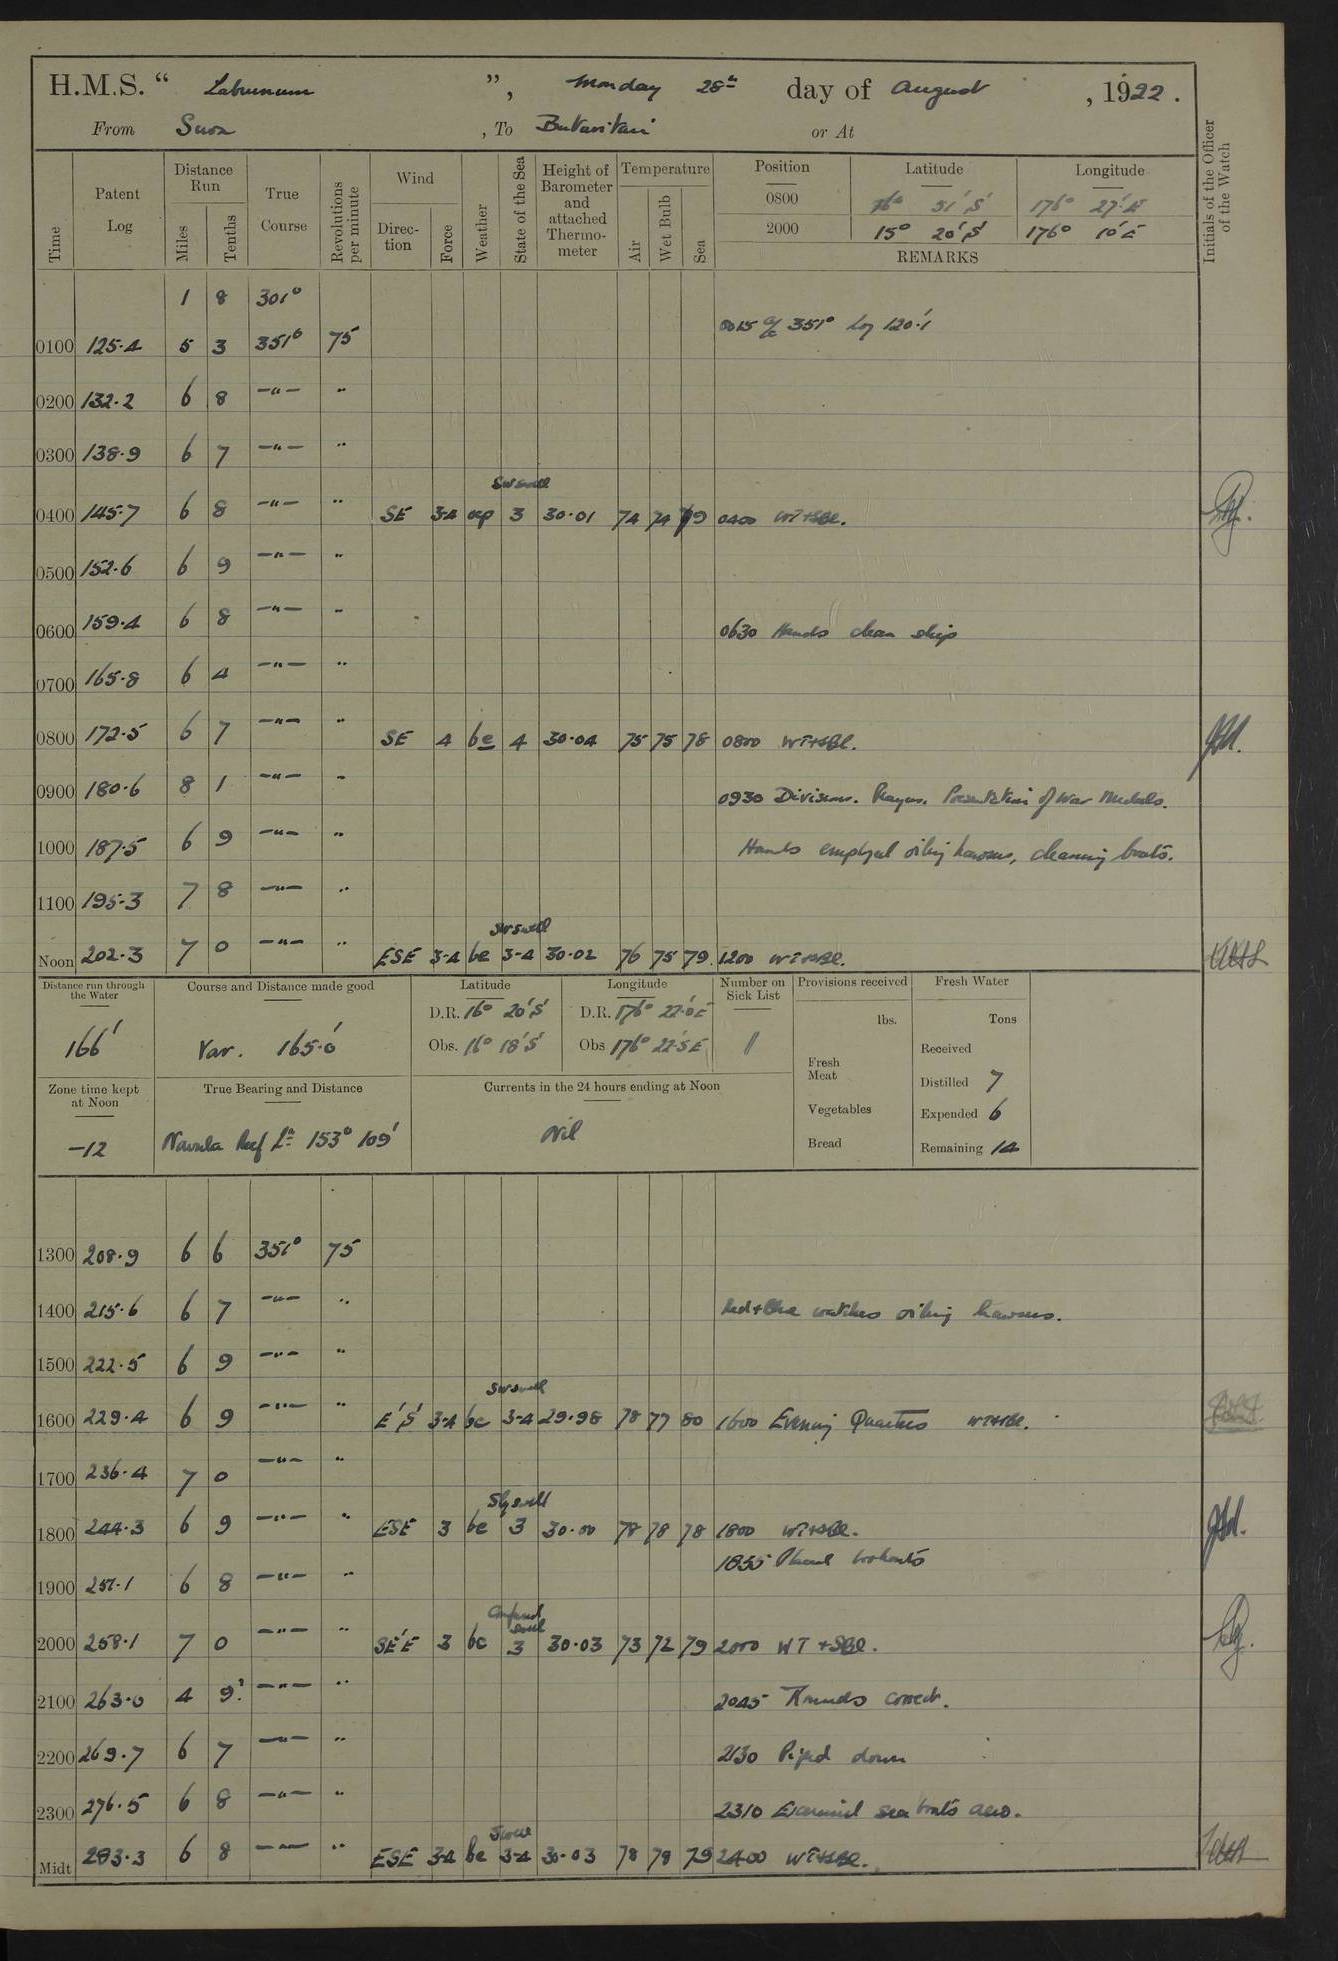 H.M.S. “ Laburnum ”, Monday 28th day of August , 1922 .
From Suva , To Butaritari or At
Time Patent Log Distance Run Miles Tenths True Course Revolutions per minute Wind Direction Force Weather State of the Sea Height of Barometer and attached Thermometer Temperature Air Wet Bulb Sea Position Latitude Longitude Initials of the Officer of the Watch
0800 16° 51' S 176° 27' E
2000 15° 20' S 176° 10' E
REMARKS
1 8 301°
0015 a/c 351° Log 120.1
0100 125.4 5 3 351° 75
0200 132.2 6 8 —"— "
0300 138.9 6 7 —"— "
SW swell
0400 145.7 6 8 —"— " SE 3-4 3 30.01 74 74 79 0400 WT+SBl.
0500 152.6 6 9 —"— "
0600 159.4 6 8 —"— "
0630 Hands clean ship
0700 165.8 6 4 —"— "
0800 172.5 6 7 —"— " SE 4 bc 4 30.04 75 75 78 0800 WT+SBl.
0900 180.6 8 1 —"— "
0930 Divisions. Prayers. Presentation of War Medals.
1000 187.5 6 9 —"— " Hands employed oiling hawsers, cleaning boats.
1100 195.3 7 8 —"— "
SW swell
Noon 202.3 7 0 —"— " ESE 3-4 bc 3-4 30.02 76 75 79 1200 WT+SBl.
Distance run through the Water Course and Distance made good Latitude Longitude Number on Sick List Provisions received Fresh Water
166' Var. 165.0' D.R. 16° 20' S D.R. 176° 22.0' E lbs. Tons
Obs. 16° 18' S Obs 176° 22.5' E 11 Fresh Meat Received
Zone time kept at Noon True Bearing and Distance Currents in the 24 hours ending at Noon Distilled 7
Vegetables Expended 6
-12 Navula Reef Lt 153° 109' Nil Bread Remaining 14
1300 208.9 6 6 351° 75
1400 215.6 6 7 —"— " Red+Blue watches oiling hawsers.
1500 222.5 6 9 —"— "
SW swell
1600 229.4 6 9 —"— " E'S 3-4 bc 3-4 29.98 78 77 80 1600 Evening Quarters WT+SBl.
1700 236.4 7 0 —"— "
Sly swell
1800 244.3 6 9 —"— " ESE 3 bc 3 30.00 78 78 78 1800 WT+SBl.
1855 Placed lookouts
1900 251.1 6 8 —"— "
Confused swell
2000 258.1 7 0 —"— " SE'E 3 bc 3 30.03 73 72 79 2000 WT+SBl.
2100 263.0 4 9 —"— " 2045 Rounds correct.
2200 269.7 6 7 —"— " 2130 Piped down
2300 276.5 6 8 —"— " 2310 Examined sea boats
Midt 283.3 6 8 —"— " ESE 3-4 bc 3-4 30.03 78 78 79 2400 WT+SBl.